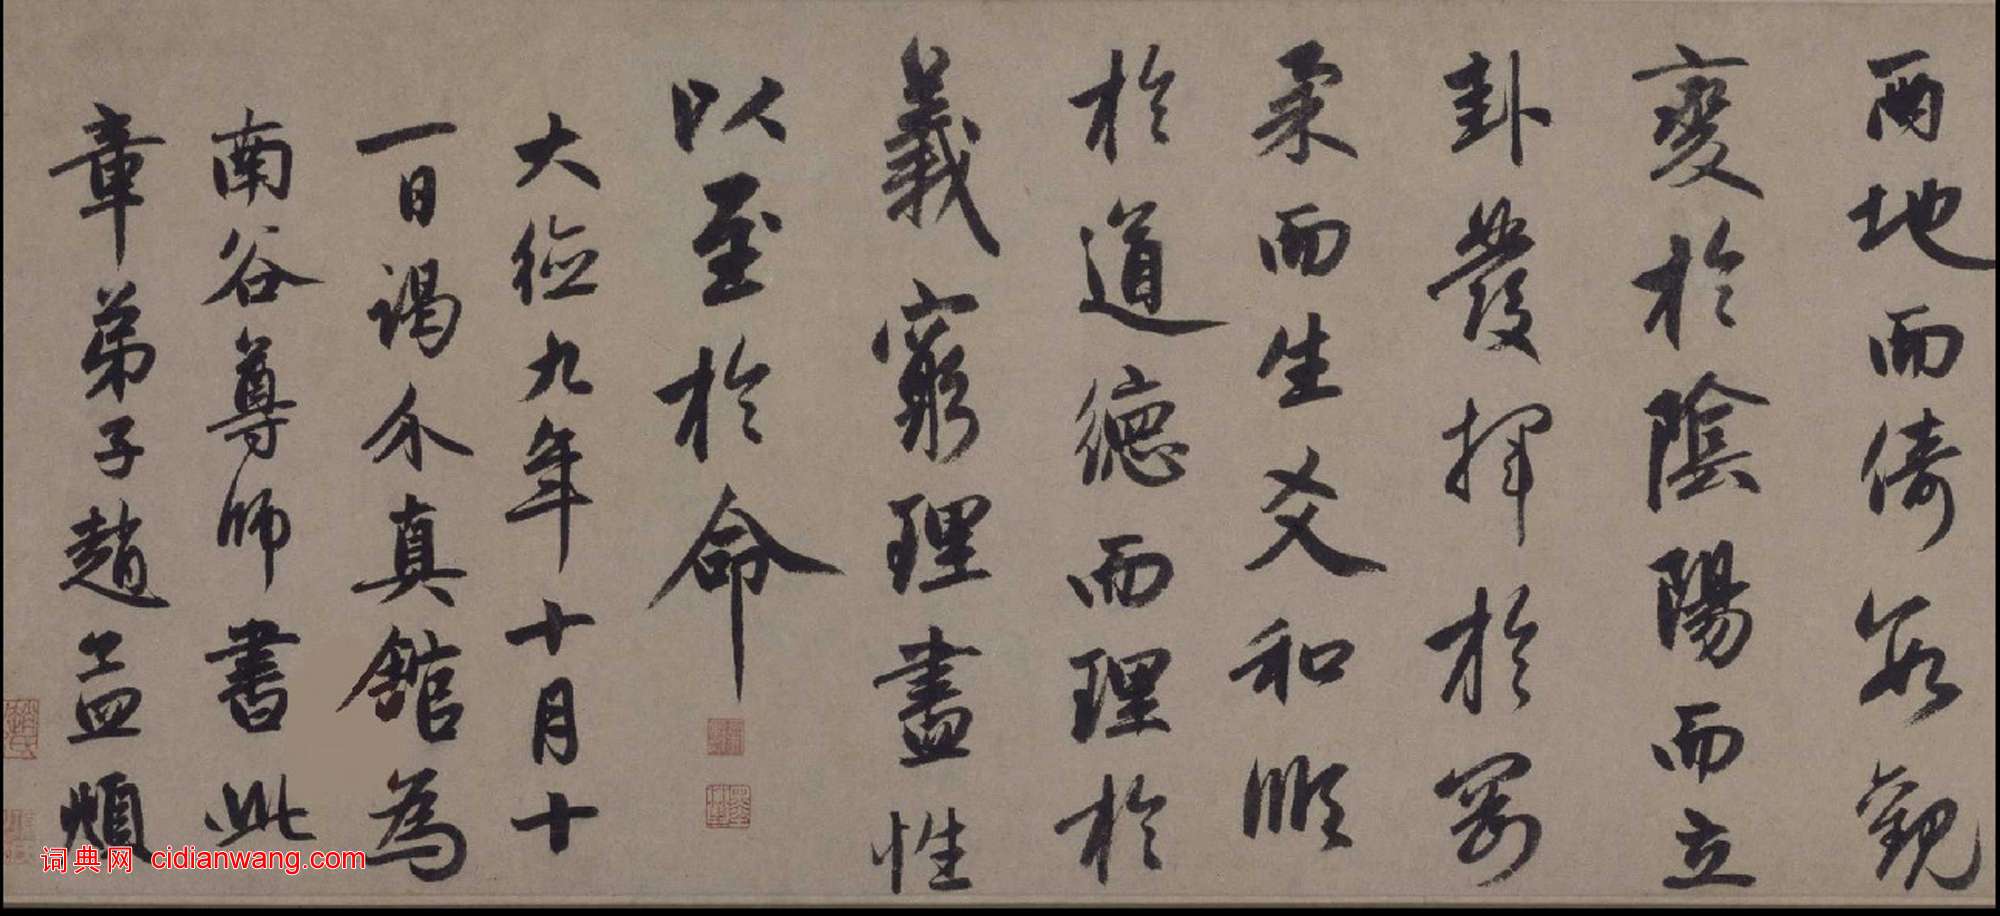 兩地而倚數觀
變於陰陽而立
卦發揮於剛
柔而生爻和順
於道德而理於
義窮理盡性
以至於命
大德九年十月十
一日謁介真館為
南谷尊師書此
章弟子趙孟頫
词典网 cidianwang.com